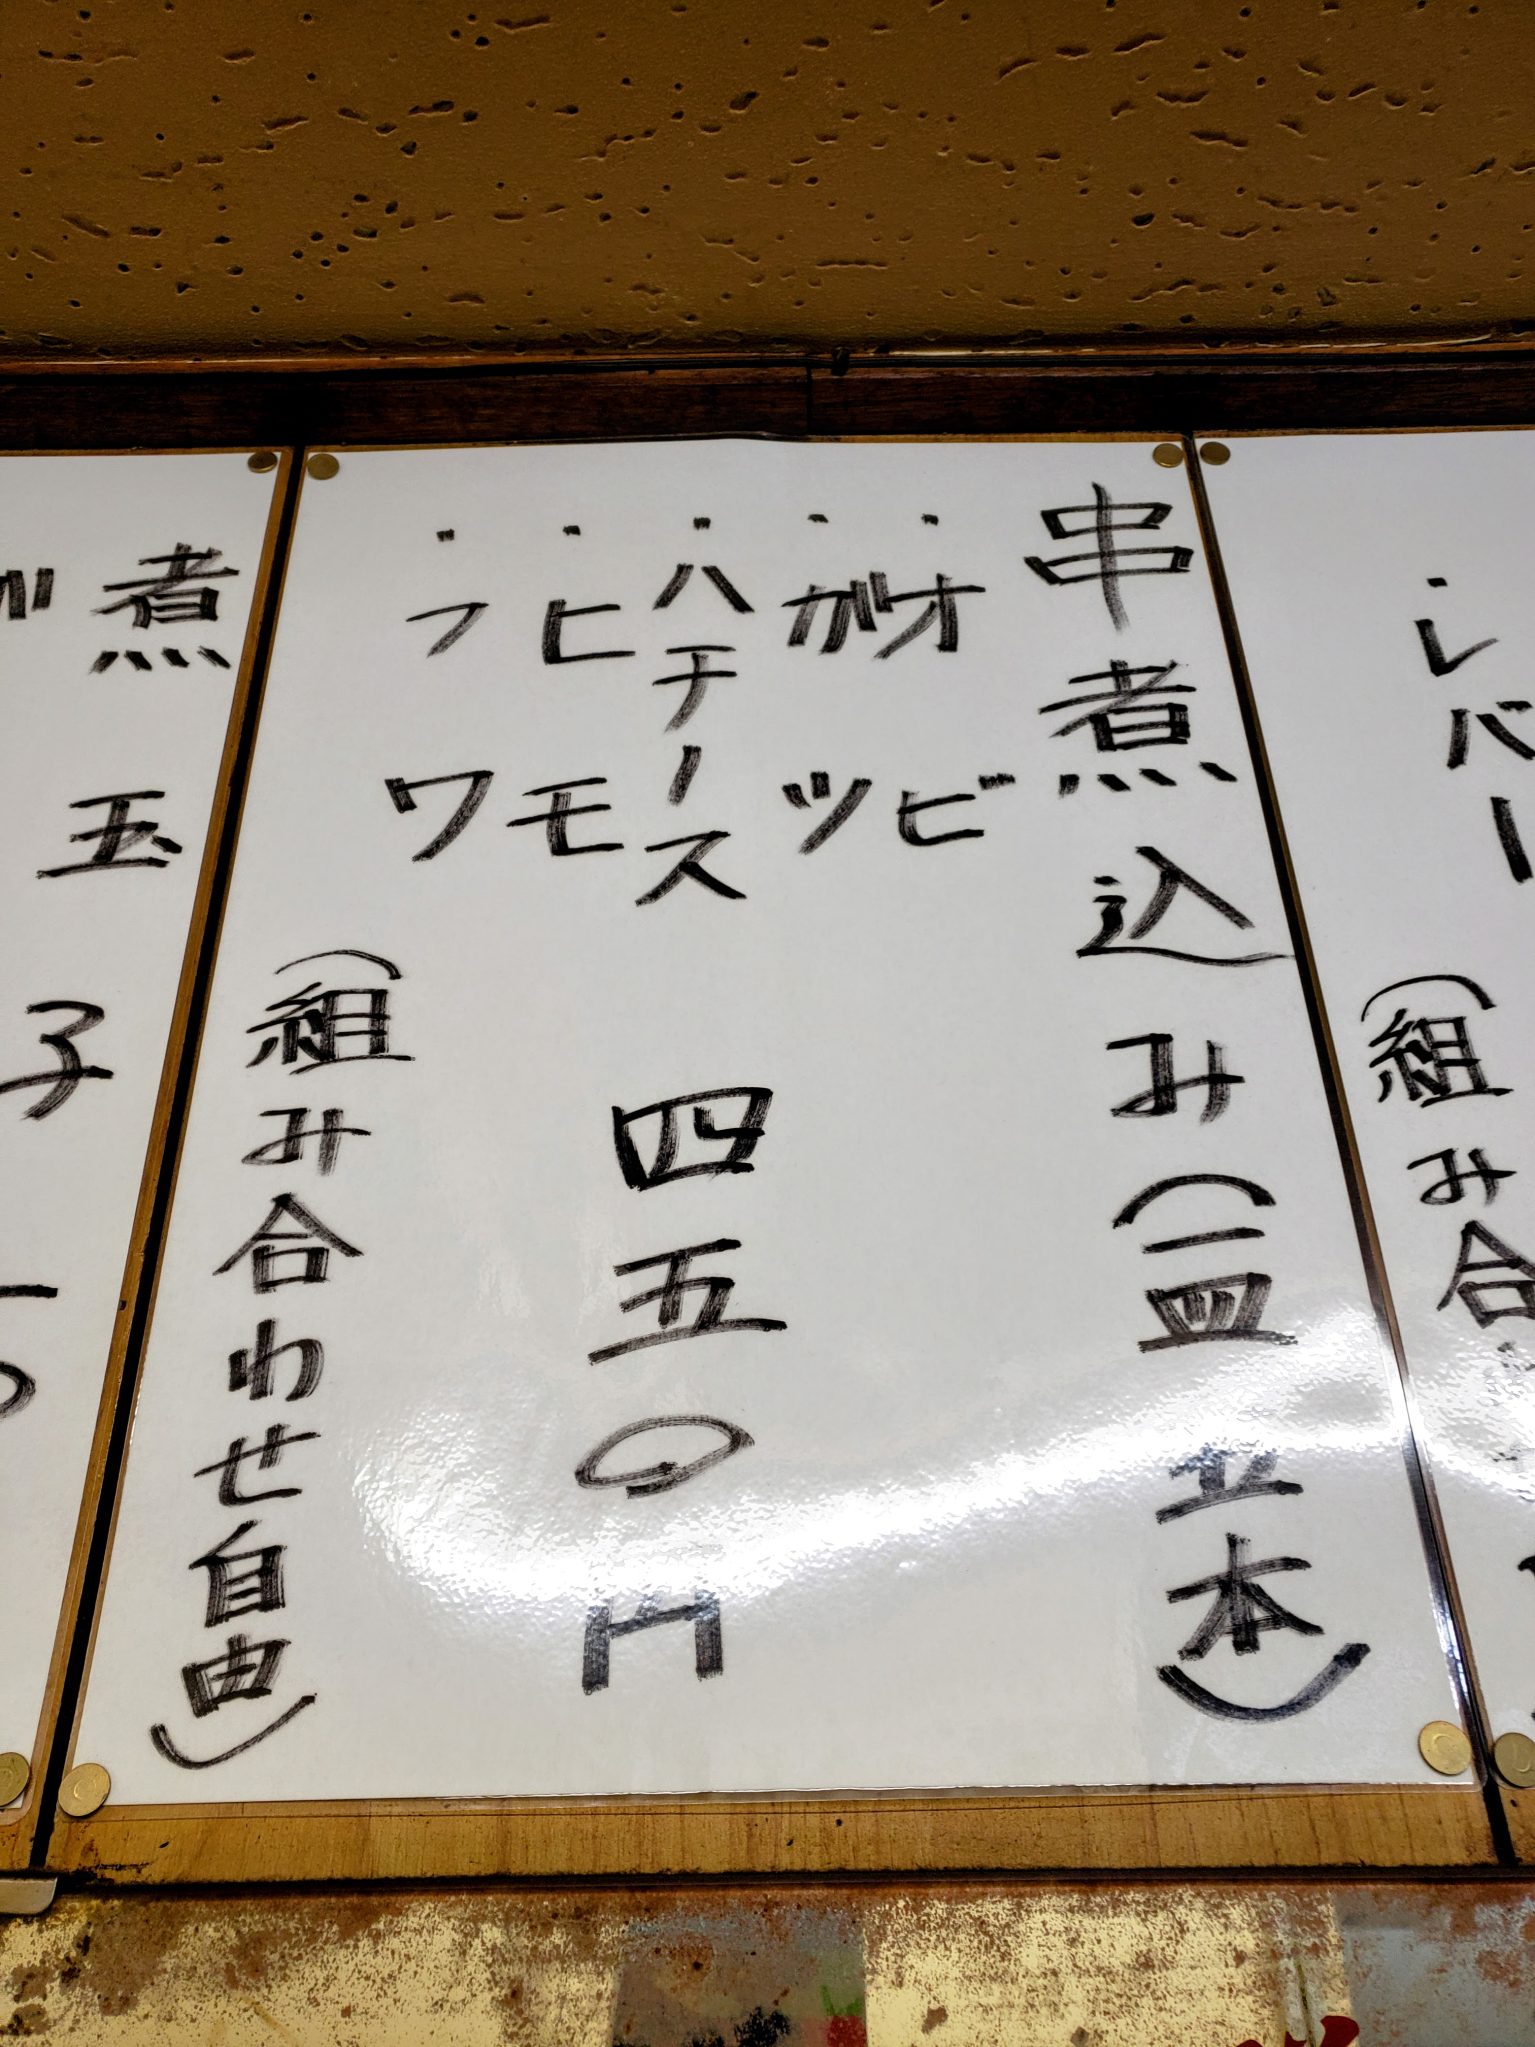 ・レバー
(組み合
串煮込み(一皿 五本)
・オビ
・ガツ
・ハチノス
・ヒモ
・フワ
四五〇円
(組み合わせ自由)
煮玉子